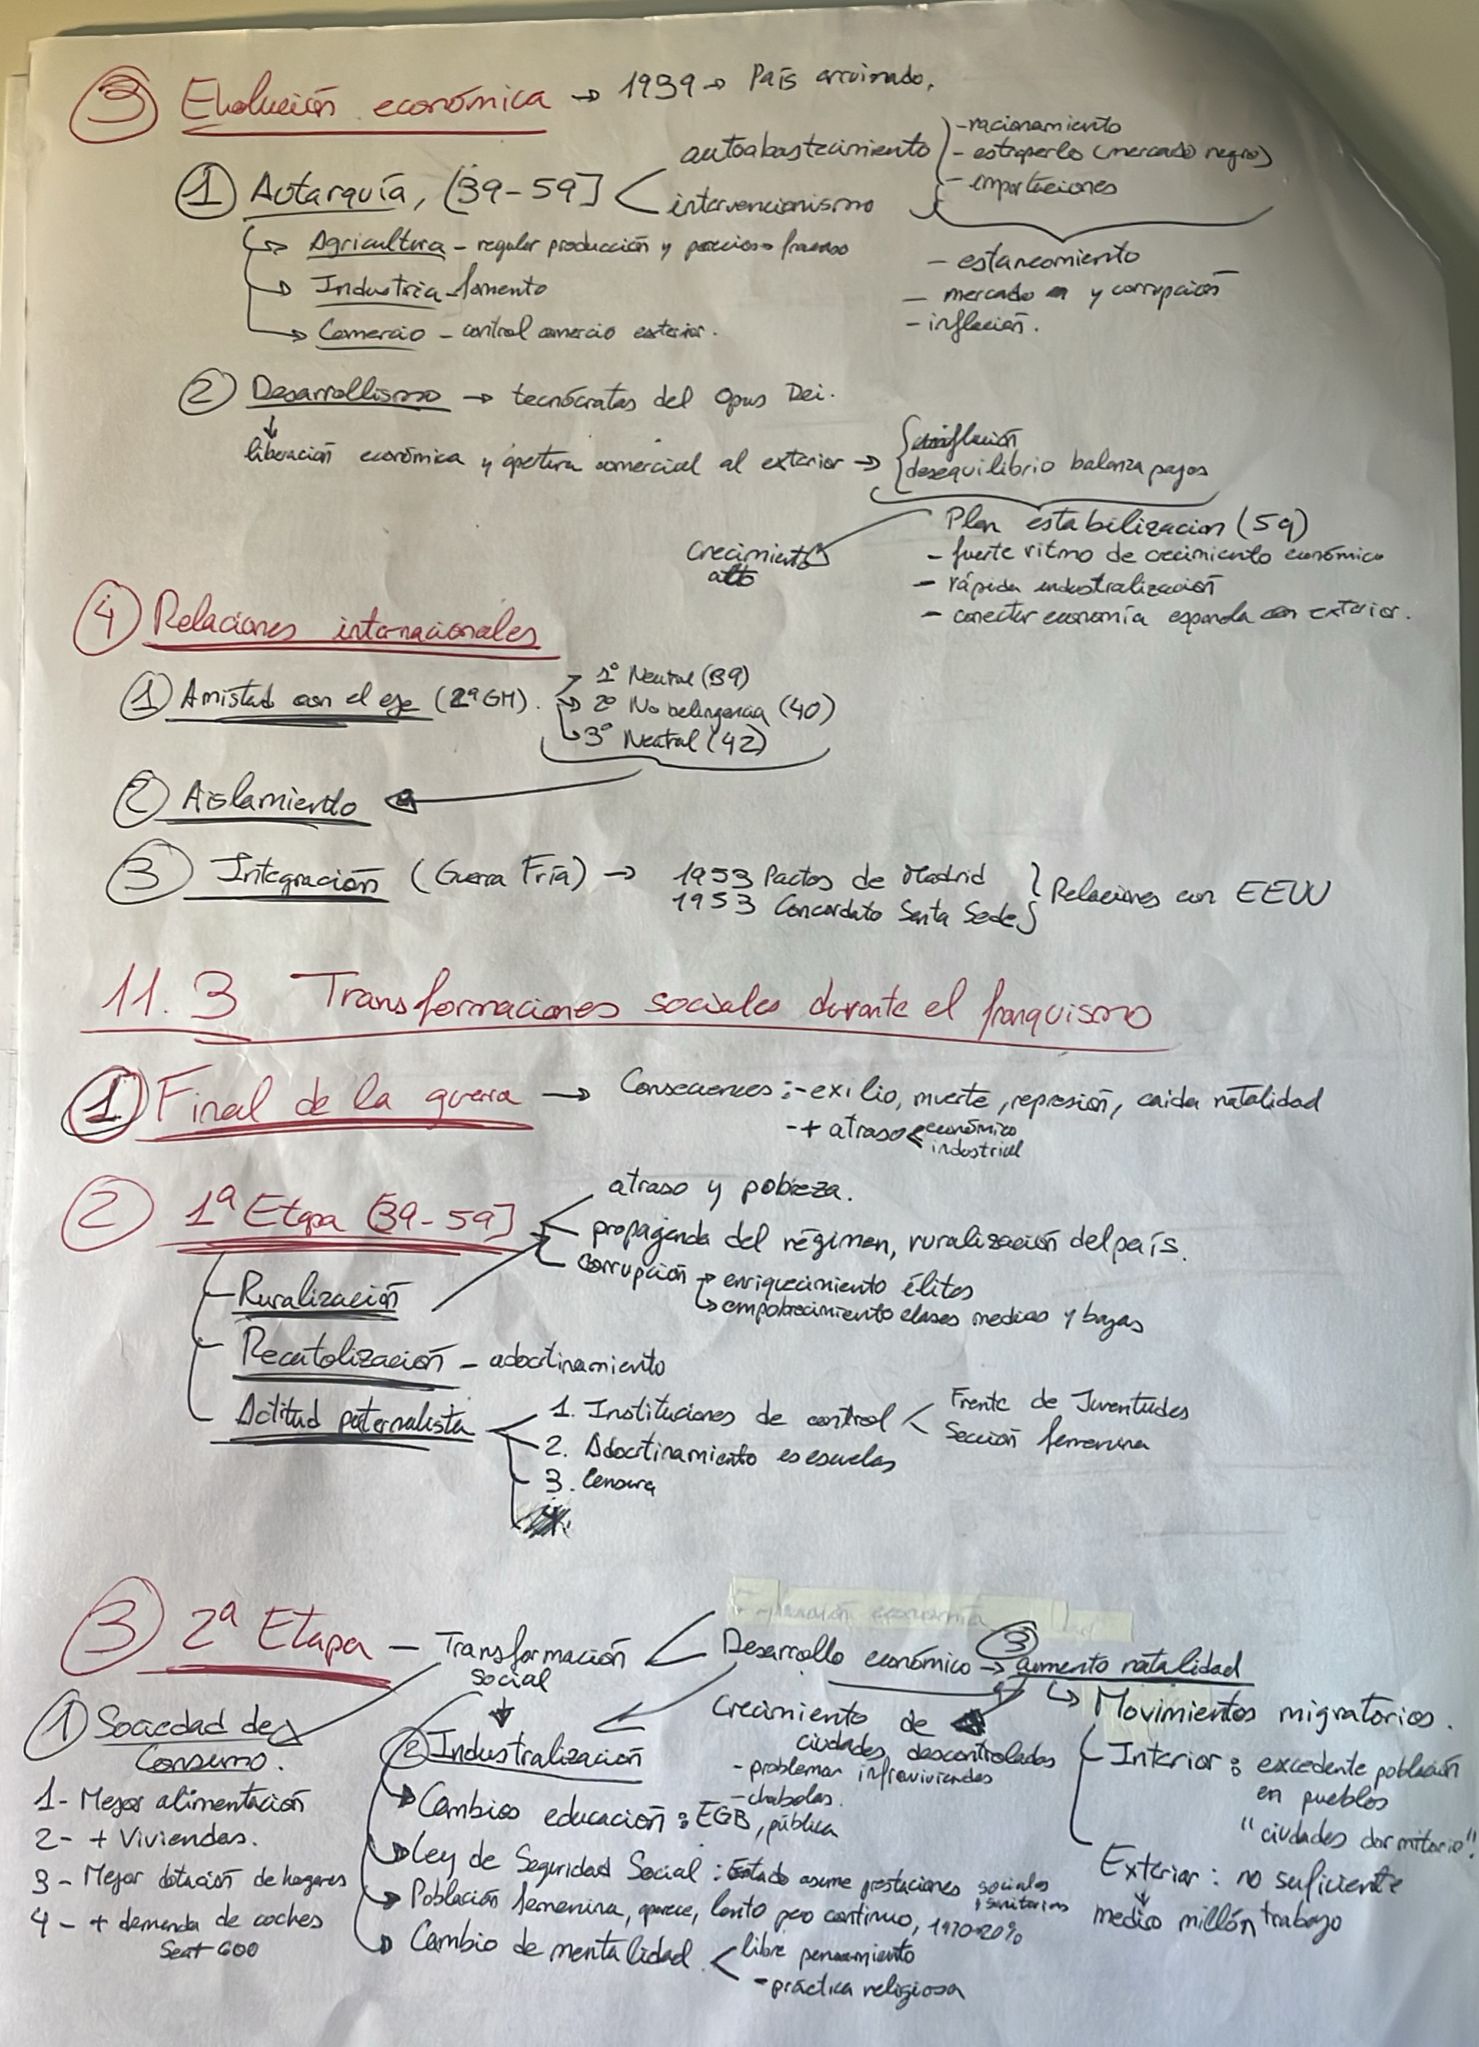 3 Evolución económica → 1939 → País arruinado.
1 Autarquía, (39-59] < autoabastecimiento
intervencionismo
- racionamiento
- estraperlo (mercado negro)
- importaciones
→ Agricultura - regular producción y precios → fracaso
→ Industria - fomento
→ Comercio - control comercio exterior.
- estancamiento
- mercado n y corrupción
- inflación.
2 Desarrollismo → tecnócratas del Opus Dei.
↓
liberación económica y apertura comercial al exterior → { inflación
desequilibrio balanza pagos
Plan estabilizacion (59)
- fuerte ritmo de crecimiento económico
- rápida industralización
- conectar economía española con exterior.
crecimiento
alto
4 Relaciones internacionales
1 Amistad con el eje (2ª GM). → 1º Neutral (39)
→ 2º No beligerancia (40)
→ 3º Neutral (42)
2 Aislamiento
3 Integración (Guerra Fría) → 1953 Pactos de Madrid
1953 Concordato Santa Sede } Relaciones con EEUU
11.3 Transformaciones sociales durante el franquismo
1 Final de la guerra → Consecuences: - exilio, muerte, represión, caída natalidad
- + atraso < económico
industrial
2 1ª Etapa (39-59] atraso y pobreza.
propaganda del régimen, ruralización del país.
corrupción → enriquecimiento élites
→ empobrecimiento clases medias y bajas
Ruralización
Recatolización - adoctrinamiento
Actitud paternalista
1. Instituciones de control < Frente de Juventudes
Sección femenina
2. Adoctrinamiento escuelas
3. Censura
3 2ª Etapa - Transformación
social
< Desarrollo económico → 3 aumento natalidad
↳ Movimientos migratorios.
Interior: excedente población
en pueblos
"ciudades dormitorio"
Exterior: no suficiente
↓
medio millón trabajo
Crecimiento de
ciudades descontroladas
- problemas infraviviendas
- chabolas.
1 Sociedad de
Consumo.
1- Mejor alimentación
2- + Viviendas.
3- Mejor dotación de hogares
4- + demanda de coches
Seat 600
2 Industralización
→ Cambios educación: EGB, pública
→ Ley de Seguridad Social: Estado asume prestaciones sociales
y sanitarias
→ Población femenina, aparece, lento pero continuo, 1970-20%
→ Cambio de mentalidad < libre pensamiento
- práctica religiosa